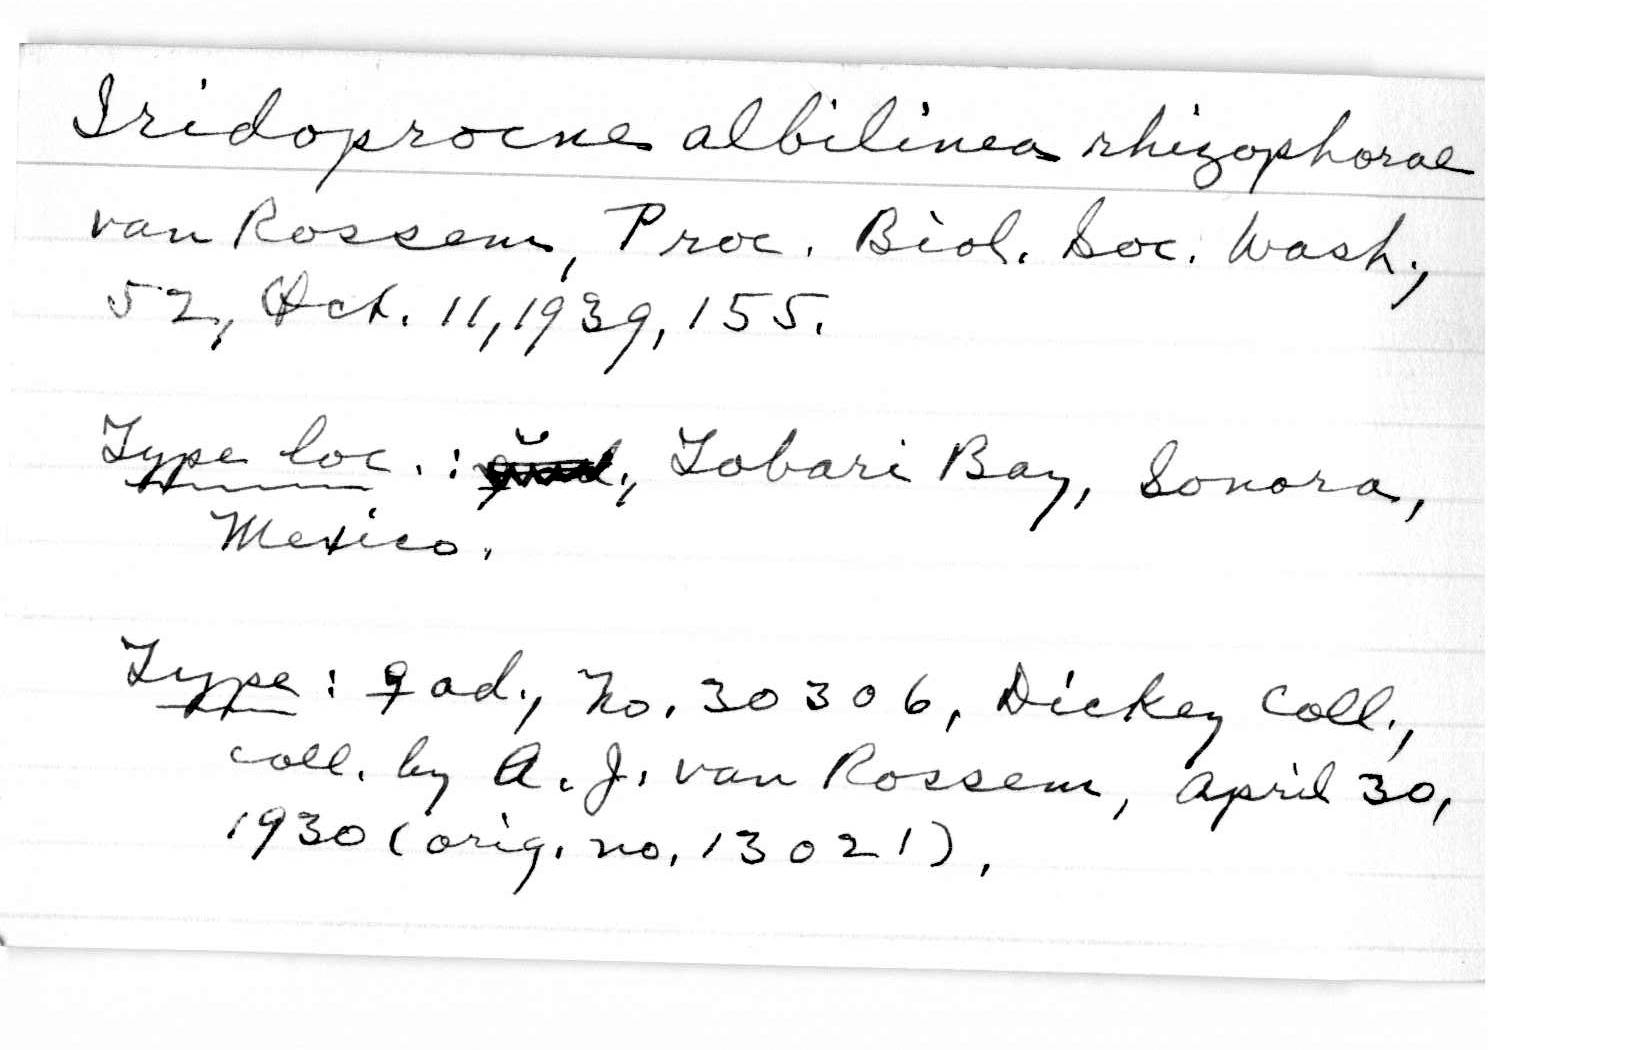 Iridoprocne albilinea rhizophorae
van Rossem, Proc. Biol. Soc. Wash.,
52, Oct. 11, 1939, 155.
Type loc.: Tobari Bay, Sonora,
Mexico.
Type: ♀ ad., No. 30306, Dickey Coll.,
coll. by A. J. van Rossem, April 30,
1930 (orig. no. 13021).